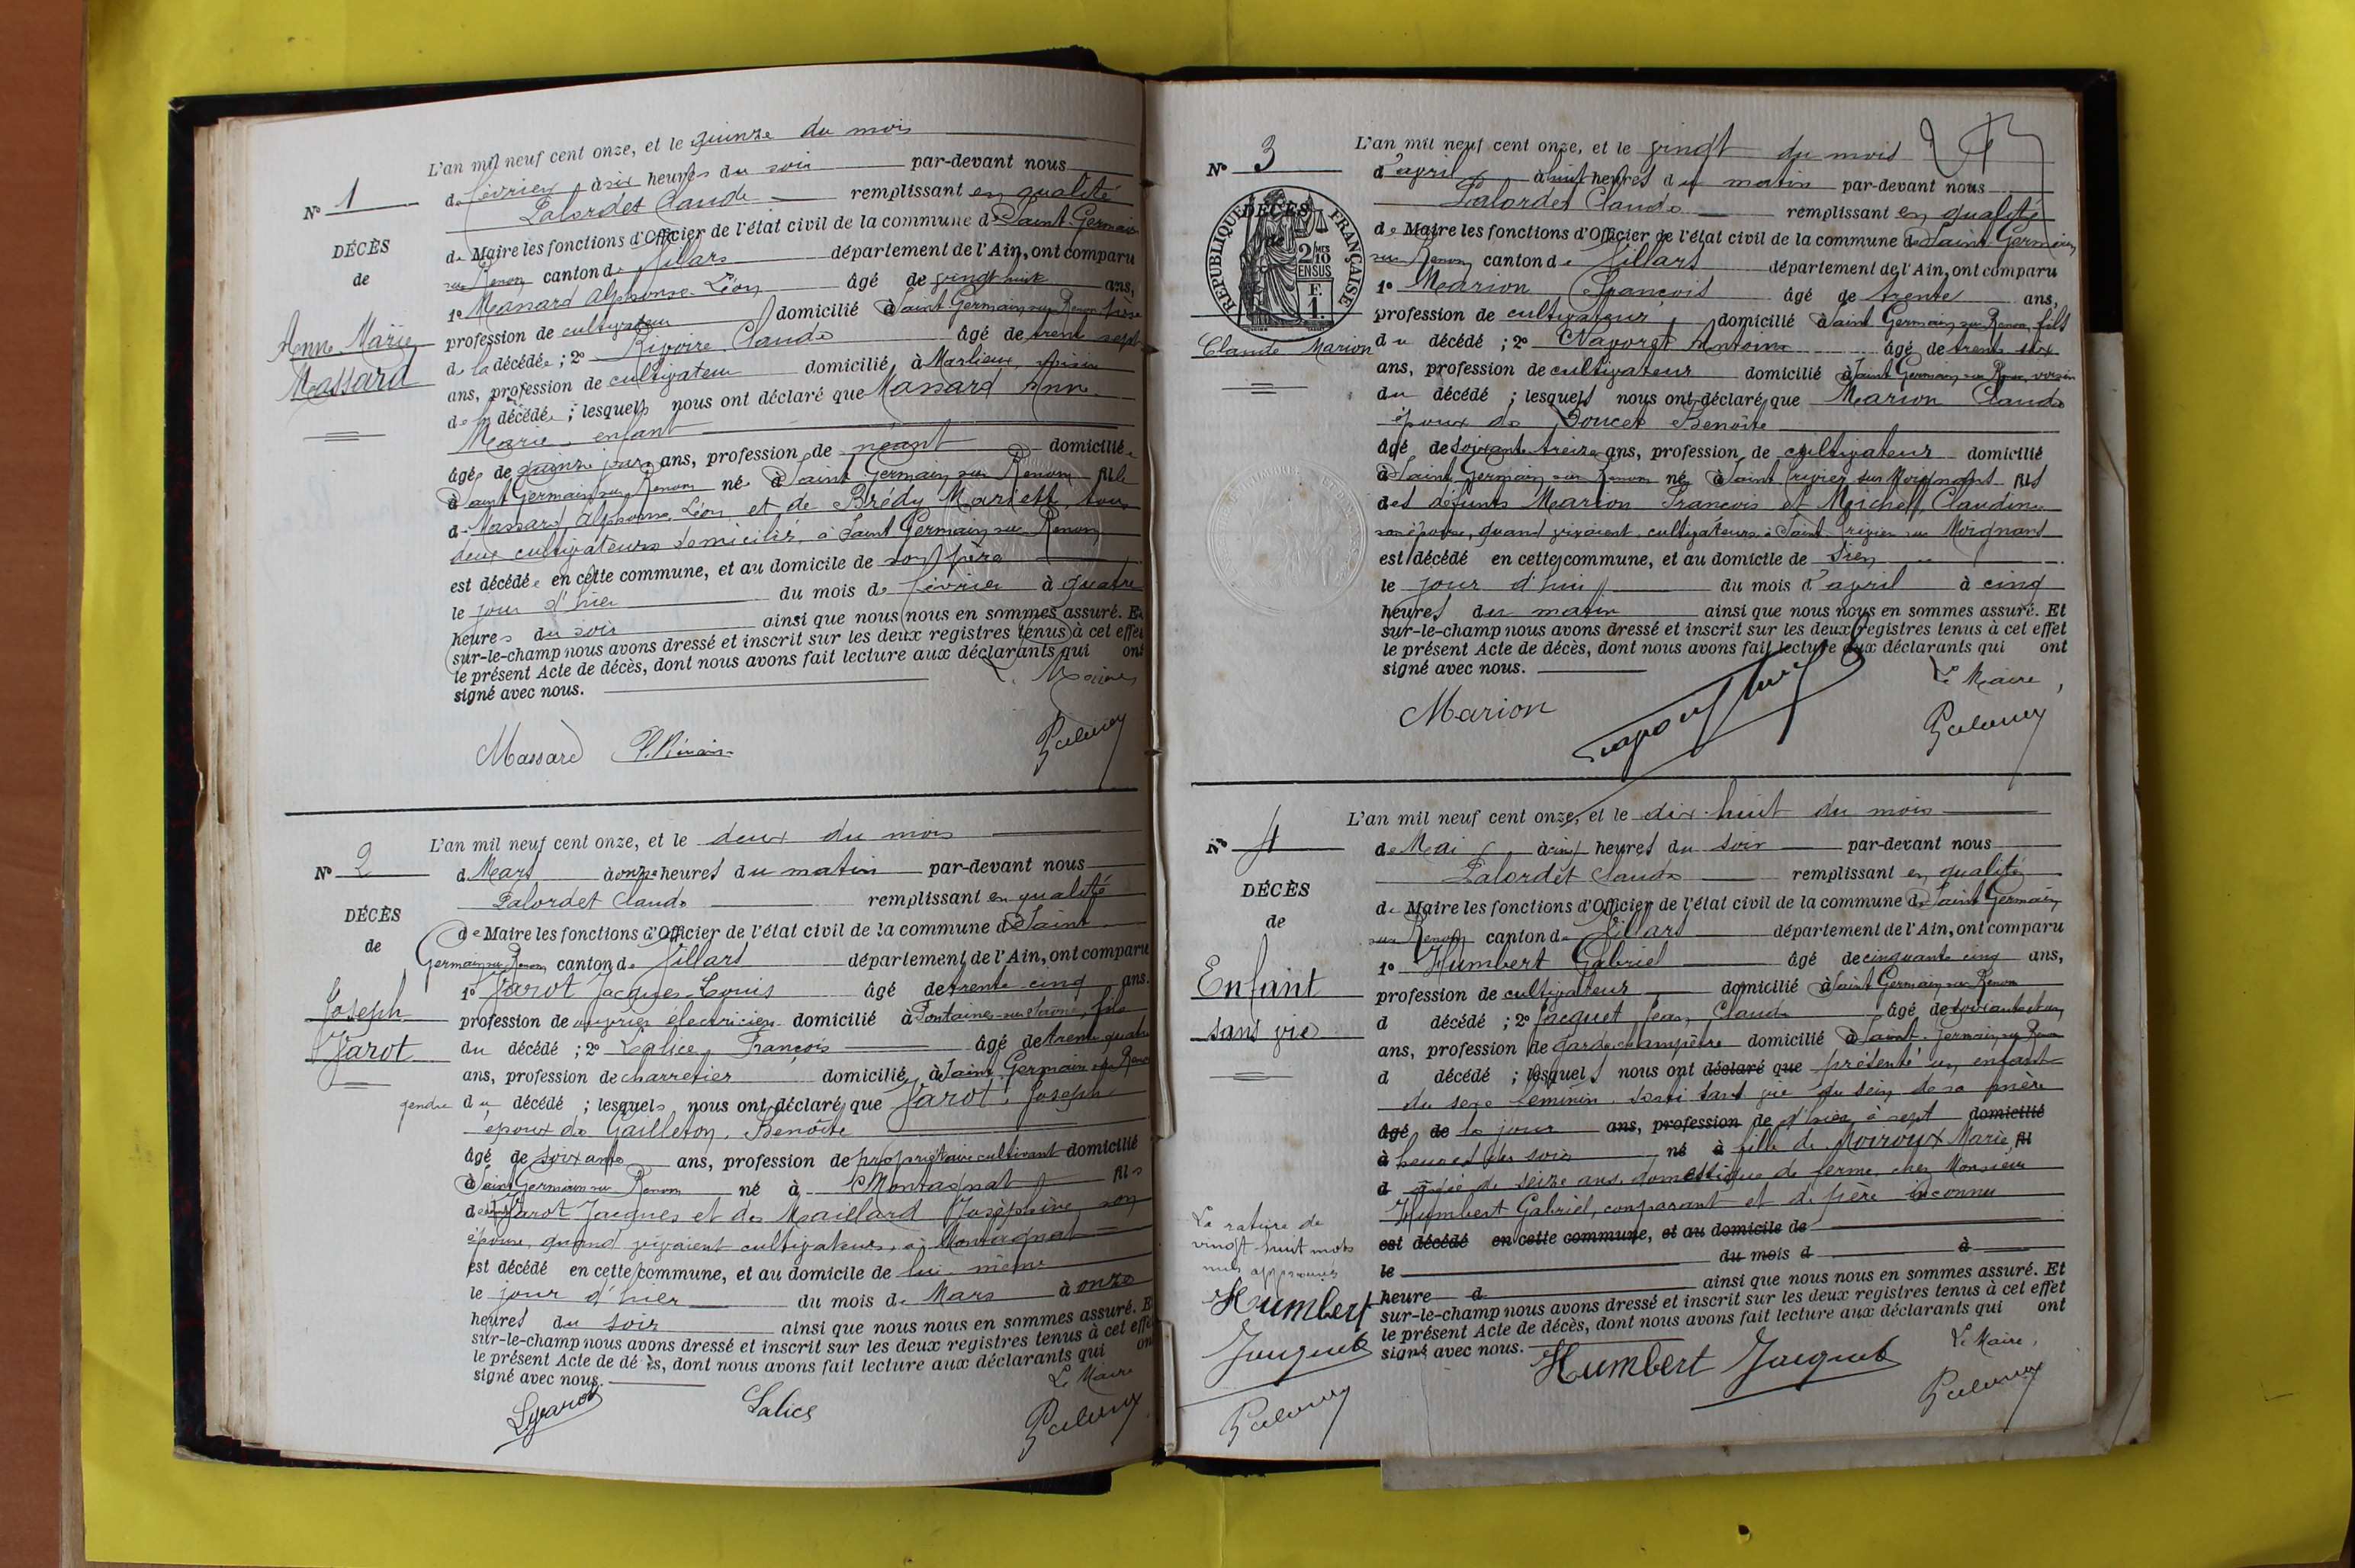 L'an mil neuf cent onze, et le quinze du mois
N° 1
de février à six heures du soir par-devant nous
Palordet Claude remplissant en qualité
DÉCÈS
de Maire les fonctions d'Officier de l'état civil de la commune de Saint Germain
de
sur Renon canton de Villars département de l'Ain, ont comparu
1° Massard Alphonse Léon âgé de vingt huit ans,
Anne Marie
profession de cultivateur domicilié à Saint Germain sur Renon, père
Massard
de la décédée ; 2° Rivoire Claude âgé de trente sept
ans, profession de cultivateur domicilié à Marlieux, voisin
de la décédée ; lesquels nous ont déclaré que Massard Anne
Marie enfant
âgée de quinze jours ans, profession de néant domiciliée
à Saint Germain sur Renon née à Saint Germain sur Renon fille
de Massard Alphonse Léon et de Brédy Mariett, tous
deux cultivateurs domiciliés à Saint Germain sur Renon
est décédée en cette commune, et au domicile de son père
le jour d'hier du mois de février à quatre
heures du soir ainsi que nous nous en sommes assuré. Et
sur-le-champ nous avons dressé et inscrit sur les deux registres tenus à cet effet
le présent Acte de décès, dont nous avons fait lecture aux déclarants qui ont
signé avec nous.
Le Maire
Massard
L'an mil neuf cent onze, et le deux du mois
N° 2
de Mars à onze heures du matin par-devant nous
Palordet Claude remplissant en qualité
DÉCÈS
de Maire les fonctions d'Officier de l'état civil de la commune de Saint
de
Germain sur Renon canton de Villars département de l'Ain, ont comparu
1° Jarot Jacques Louis âgé de trente cinq ans.
Joseph
profession de ouvrier electricien domicilié à Fontaines-sur-Saône, fils
Jarot
du décédé ; 2° Lalice François âgé de trente quatre
ans, profession de charretier domicilié à Saint Germain sur Renon
gendre du décédé ; lesquels nous ont déclaré que Jarot Joseph
époux de Gailleton Benoite
âgé de soixante ans, profession de propriétaire cultivant domicilié
à Saint Germain sur Renon né à Montagnat fils
de Jarot Jacques et de Maillard Joséphine son
épouse, quand vivaient cultivateurs, à Montagnat
est décédé en cette commune, et au domicile de lui-même
le jour d'hier du mois de Mars à onze
heures du soir ainsi que nous nous en sommes assuré. Et
sur-le-champ nous avons dressé et inscrit sur les deux registres tenus à cet effet
le présent Acte de décès, dont nous avons fait lecture aux déclarants qui ont
signé avec nous.
Le Maire
Lalice
L'an mil neuf cent onze, et le vingt du mois
N° 3
d'avril à huit heures du matin par-devant nous
Palordet Claude remplissant en qualité
DÉCÈS
de
RÉPUBLIQUE FRANÇAISE
2/10 EN SUS
F. 1.
de Maire les fonctions d'Officier de l'état civil de la commune de Saint Germain
sur Renon canton de Villars département de l'Ain, ont comparu
1° Marion François âgé de trente ans,
profession de cultivateur domicilié à Saint Germain sur Renon, fils
Claude Marion
du décédé ; 2° Naporet Antoine âgé de trente six
ans, profession de cultivateur domicilié à Saint Germain sur Renon, voisin
du décédé ; lesquels nous ont déclaré que Marion Claude
époux de Poncet Benoîte
âgé de soixante treize ans, profession de cultivateur domicilié
à Saint Germain sur Renon né à Saint Trivier sur Moignans fils
des défunts Marion François et Michel Claudine
son épouse, quand vivaient cultivateurs à Saint Trivier sur Moignans
est décédé en cette commune, et au domicile de sien
le jour d'hui du mois d'avril à cinq
heures du matin ainsi que nous nous en sommes assuré. Et
sur-le-champ nous avons dressé et inscrit sur les deux registres tenus à cet effet
le présent Acte de décès, dont nous avons fait lecture aux déclarants qui ont
signé avec nous.
Le Maire,
Marion
L'an mil neuf cent onze, et le dix-huit du mois
N° 4
de Mai à cinq heures du soir par-devant nous
Palordet Claude remplissant en qualité
DÉCÈS
de Maire les fonctions d'Officier de l'état civil de la commune de Saint Germain
de
sur Renon canton de Villars département de l'Ain, ont comparu
1° Humbert Gabriel âgé de cinquante cinq ans,
Enfant
profession de cultivateur domicilié à Saint Germain sur Renon
sans vie
d décédé ; 2° Jacquet Jean Claude âgé de soixante et un
ans, profession de garde champêtre domicilié à Saint Germain sur Renon
d décédé ; lesquels nous ont déclaré que présenté un enfant
du sexe féminin sorti sans vie du sein de sa mère
âgé de le jour ans, profession de d'hier à sept domicilié
à heures du soir né à fille de Moiroux Marie fil
d âgée de seize ans, domestique de ferme, chez Monsieur
Humbert Gabriel, comparant et de père inconnu
est décédé en cette commune, et au domicile de
le du mois d à
heure d ainsi que nous nous en sommes assuré. Et
sur-le-champ nous avons dressé et inscrit sur les deux registres tenus à cet effet
le présent Acte de décès, dont nous avons fait lecture aux déclarants qui ont
signé avec nous.
Le Maire,
Humbert Jacquet
La rature de
vingt huit mots
nuls approuvés
Humbert
Jacquet